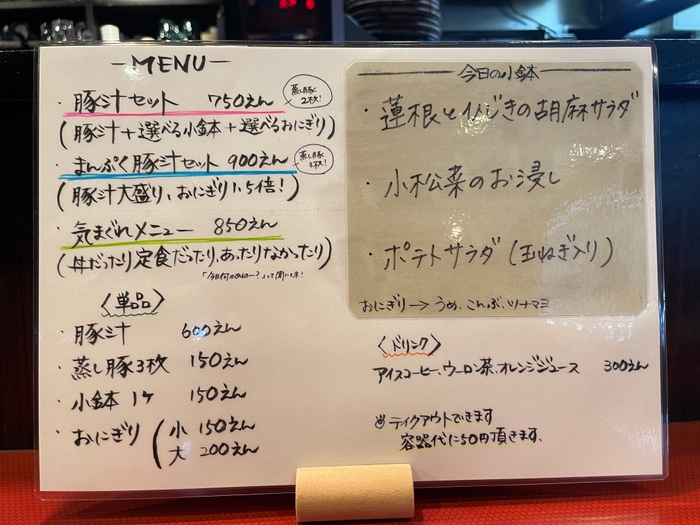 -MENU-
・豚汁セット 750えん
蒸し豚2枚!
(豚汁+選べる小鉢+選べるおにぎり)
・まんぷく豚汁セット 900えん
蒸し豚3枚!
(豚汁大盛り、おにぎり1.5倍!)
・気まぐれメニュー 850えん
(丼だったり定食だったり、あったりなかったり)
〈単品〉
・豚汁 600えん
・蒸し豚3枚 150えん
・小鉢1ケ 150えん
・おにぎり(小 150えん
大 200えん
今日の小鉢
・蓮根とひじきの胡麻サラダ
・小松菜のお浸し
・ポテトサラダ(玉ねぎ入り)
おにぎり→うめ、こんぶ、ツナマヨ
〈ドリンク〉
アイスコーヒー、ウーロン茶、オレンジジュース 300えん
テイクアウトできます
容器代に50円頂きます。